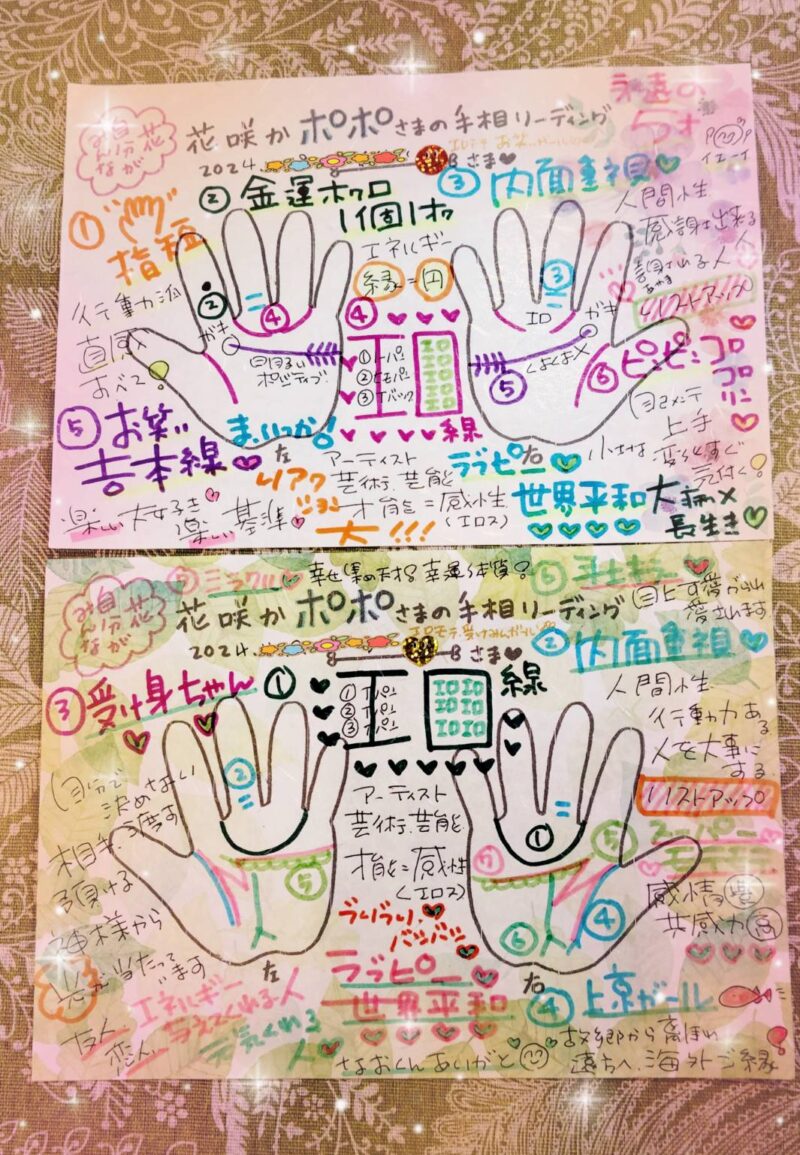 花
自分
みんなが
花咲かポポさまの手相リーディング
永遠の
5才
イエーイ
2024.
さま♥
① 指短
② 金運ホクロ
1個1オク
エネルギー
縁=円
③ 内面重視♥
人間性
感謝出来る
人
リストアップ
行動力派
直感
すべて!
②
④
ガキ
明るい
ポジティブ!
④
エ
ロ
① Tパン
② ヒモパン
③ Tバック
線
③
エロ
ガキ
くよくよ×
⑤
⑥ ピンピンコロ
コロ
リン
自己メンテ
上手
小さな変化すぐ
気付く!
⑤ お笑い
吉本線♥
楽しい大好き
楽しい基準
ま、いっか!
左
リアク
ション
大!!!
アーティスト
芸術、芸能
才能=感性
(エロス)
ラブピー♥
右
世界平和
大病×
長生き♥
花
自分
みんなが
⑦ ミラクル♥
幸せ集め天才!幸運体質!
花咲かポポさまの手相リーディング
2024.
さま♥
愛されます
② 内面重視♥
人間性
行動力ある
人を大事に
する
リストアップ
③ 受け身ちゃん
自分で
決めない
相手に渡す
預ける
神様から
友人
恋人
①
エ
ロ
線
① Tパン
② Tパン
③ Tパン
エロ エロ
エロ エロ
エロ エロ
②
⑤
左
アーティスト
芸術、芸能
才能=感性
(エロス)
①
⑦
⑥
④
右
⑤ スーパー
モテ
感情豊
共感力高
エネルギー
与えてくれる人
元気くれる
人
ラブピー
世界平和
なおくんあいがと
④ 上京ガール
故郷から離れ
遠ちへ、海外ご縁